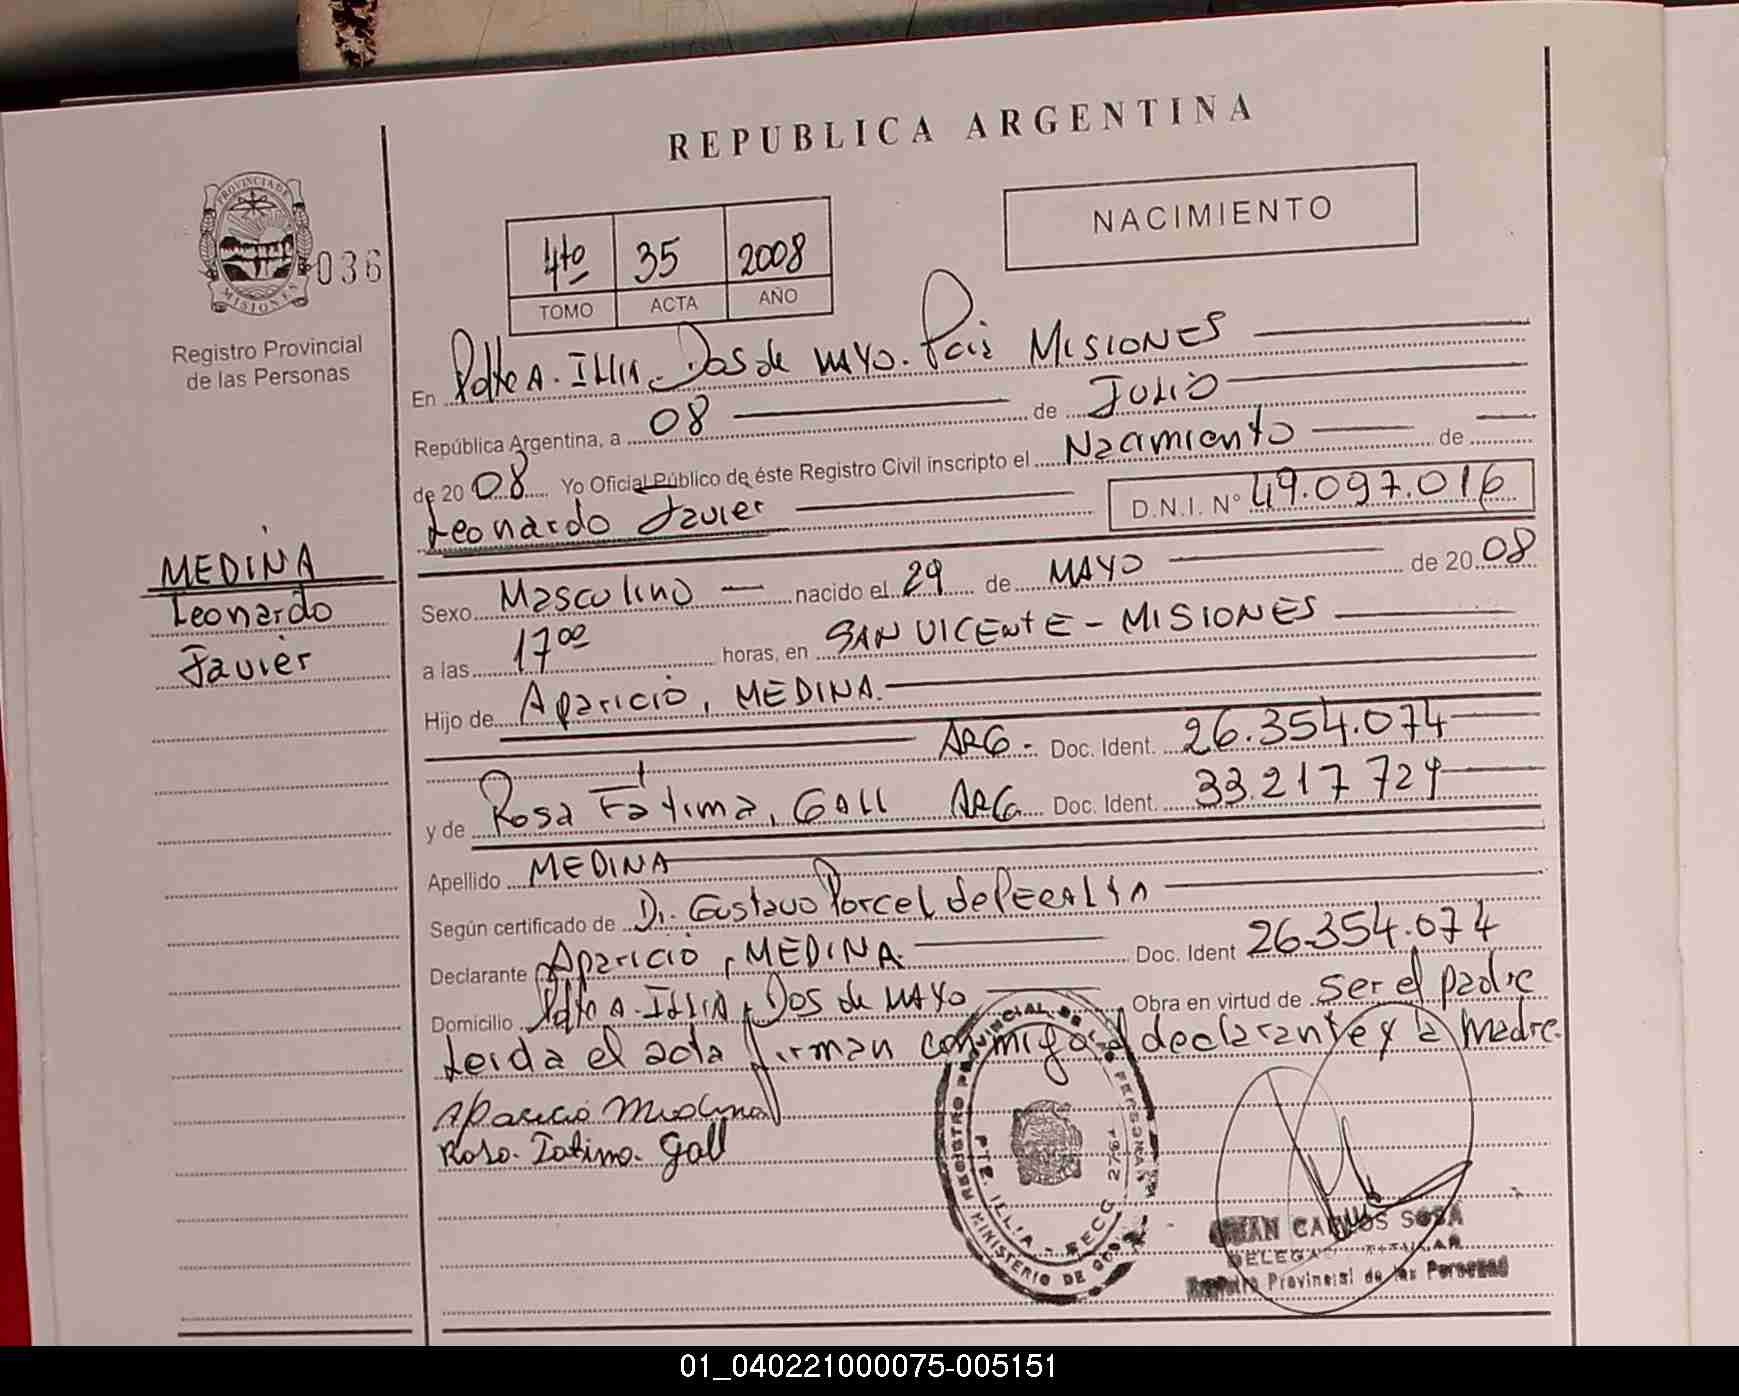 REPUBLICA ARGENTINA
PROVINCIA DE
MISIONES
036
Registro Provincial
de las Personas
4to 35 2008
TOMO ACTA AÑO
NACIMIENTO
En Pdte A. Illia. Dos de Mayo. Pcia MISIONES
República Argentina, a 08 de Julio
de 2008 Yo Oficial Público de éste Registro Civil inscripto el Nacimiento de
Leonardo Javier D.N.I. N° 49.097.016
MEDINA
Leonardo
Javier
Sexo Masculino nacido el 29 de MAYO de 2008
a las 17 00 horas, en SAN VICENTE - MISIONES
Hijo de Aparicio, MEDINA.
ARG. Doc. Ident. 26.354.074
y de Rosa Fátima, GALL ARG Doc. Ident. 33.217 729
Apellido MEDINA
Según certificado de Dr. Gustavo Porcel de PERALTA
Declarante Aparicio, MEDINA. Doc. Ident 26.354.074
Domicilio Pdte A. Illia, Dos de MAYO Obra en virtud de ser el padre
Leida el acta firman conmigo el declarante y la madre.
Aparicio Medina
Rosa Fatima Gall
REGISTRO PROVINCIAL DE LAS PERSONAS
PTE. ILLIA - SECC. 2764
MINISTERIO DE GOB
JUAN CARLOS SOSA
DELEGADO TITULAR
Registro Provincial de las Personas
01_040221000075-005151